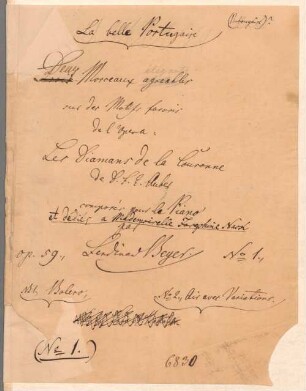 La belle Portugaise
Deux Morceaux agréables
sur des Motifs favoris
de l'Opera:
Les Diamans de la Couronne
de D. F. E. Auber
composés pour le Piano
et dédiés a Mademoiselle
par
op. 59, Ferdinand Beyer No 1.
No 1. Bolero. No 2. Air avec Variations.
(No 1.)
6830